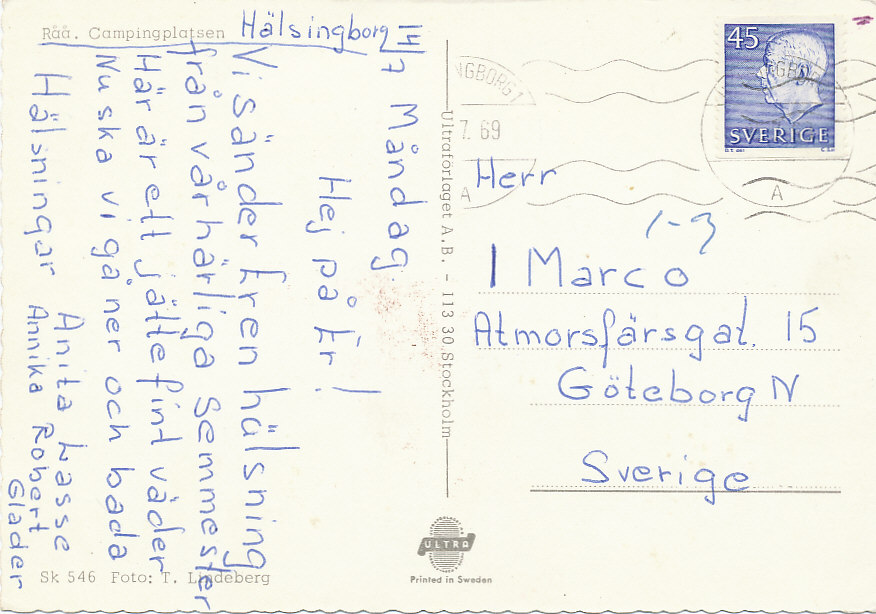 Råå. Campingplatsen Hälsingborg
14/7 Måndag.
Hej på Er!
Vi sänder Eren hälsning
från vår härliga Semmester
Här är ett jättefint väder
Nu ska vi gå ner och bada
Hälsningar Anita Lasse
Annika Robert
Glader
Sk 546 Foto: T. Lindeberg
Ultraförlaget A.B. - 113 30 Stockholm
ULTRA
Printed in Sweden
NGBORG 1
7. 69
A
45
SVERIGE
A
Herr
1-3
I Marco
Atmorsfärsgat. 15
Göteborg N
Sverige